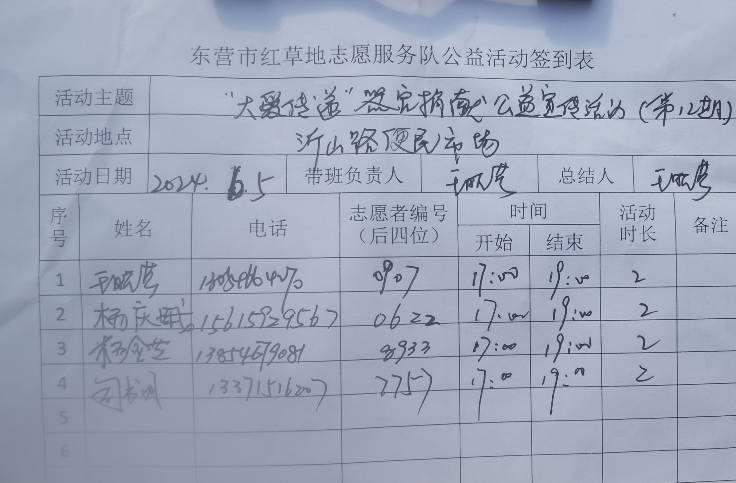 东营市红草地志愿服务队公益活动签到表
活动主题 "大爱传递"器官捐献公益宣传活动(第12期)
活动地点 沂山路便民市场
活动日期 2024.6.5 带班负责人 总结人
序号 姓名 电话 志愿者编号(后四位) 时间 开始 结束 活动时长 备注
1 0907 17:00 19:00 2
2 杨庆 15615929567 0622 17:00 19:00 2
3 13854679081 8933 17:00 19:00 2
4 13371516207 7757 17:00 19:00 2
5
6